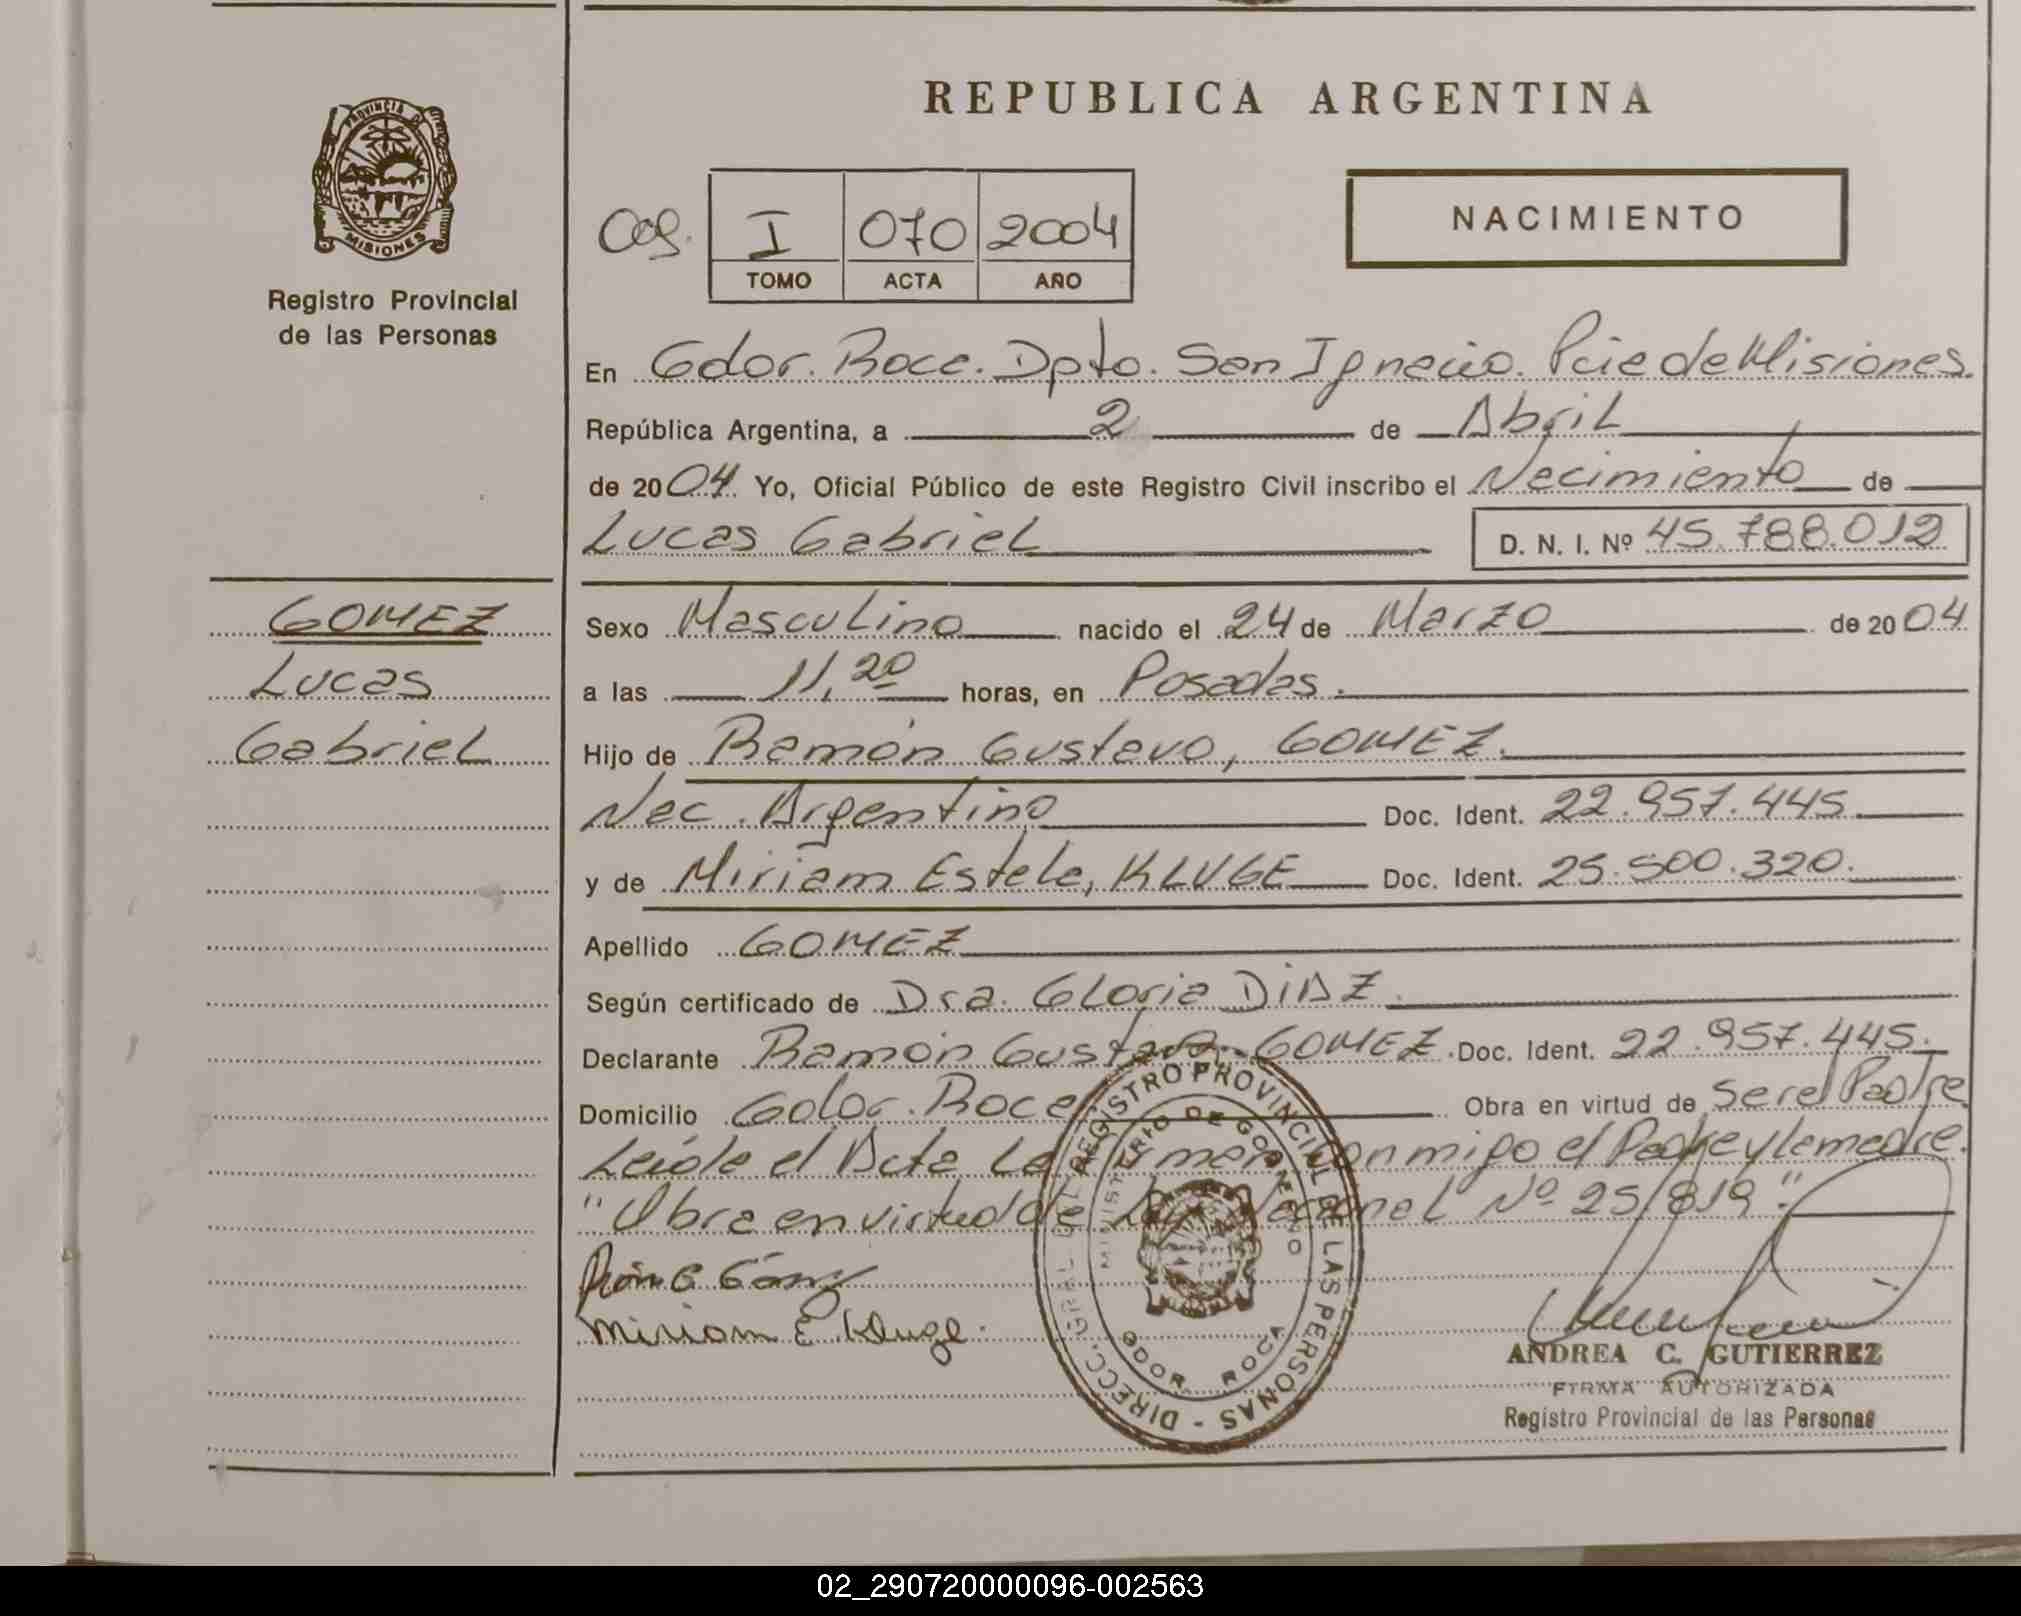 REPUBLICA ARGENTINA
PROVINCIA D
MISIONES
Registro Provincial
de las Personas
I 070 2004
TOMO ACTA AÑO
NACIMIENTO
En Gdor. Roca. Dpto. San Ignacio. Pcia de Misiones.
República Argentina, a 2 de Abril
de 2004 Yo, Oficial Público de este Registro Civil inscribo el Nacimiento de
Lucas Gabriel D. N. I. Nº 45.788.012
GOMEZ
Lucas
Gabriel
Sexo Masculino nacido el 24 de Marzo de 2004
a las 11,20 horas, en Posadas.
Hijo de Ramón Gustavo, GOMEZ.
Nac. Argentino Doc. Ident. 22.957.445
y de Miriam Estela, KLUGE Doc. Ident. 25.500.320.
Apellido GOMEZ
Según certificado de Dra. Gloria DiAZ.
Declarante Ramón Gustavo GOMEZ. Doc. Ident. 22.957.445.
Domicilio Gdor. Roca Obra en virtud de ser el Padre
Leída el Acta La firman conmigo el Padre y la madre.
"Obra en virtud de Ley Nacional Nº 25/819".
Miriam E Kluge.
DIRECC. GRAL. DEL REGISTRO PROVINCIAL DE LAS PERSONAS -
MINISTERIO DE GOBIERNO
GDOR. ROCA
ANDREA C. GUTIERREZ
FIRMA AUTORIZADA
Registro Provincial de las Personas
02_290720000096-002563